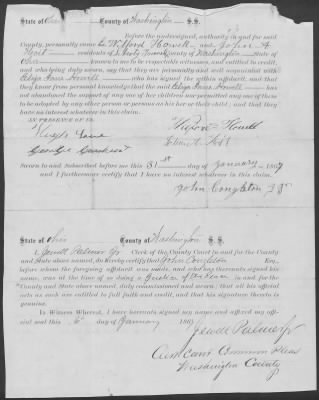 State of Ohio County of Washington S.S.
Before the undersigned, authority in and for said
County, personally came Wilford Howell and John A
Holt residents of Liberty Town County of Washington State of
Ohio known to me to be respectable witnesses, and entitled to credit,
and who being duly sworn, say that they are personally and well acquainted with
Eliza Jane Howell who has signed the within affidavit, and that
they know from personal knowledge that the said Eliza Jane Howell has
not abandoned the support of any one of her children nor permitted any one of these
to be adopted by any other person or persons as his or her child; and that they
have no interest whatever in this claim.
IN PRESENCE OF US.
Hugh Lowe
George
Wilford Howell
John A Holt
Sworn to and Subscribed before me this 31st day of January 1867
and I furthermore certify that I have no interest whatever in this claim.
John Congleton J P
State of Ohio County of Washington S.S.
I, Jewell Palmer Jr Clerk of the County Court in and for the County
and State above named, do hereby certify that John Congleton Esq.,
before whom the foregoing affidavit was made, and who has thereunto signed his
name, was at the time of so doing a Justice of the Peace in and for the
County and State above named, duly commissioned and sworn; that all his official
acts as such are entitled to full faith and credit, and that his signature thereto is
genuine.
In Witness Whereof, I have hereunto signed my name and affixed my offi-
cial seal this day of January 186
Jewell Palmer Jr
Common Pleas
Washington County